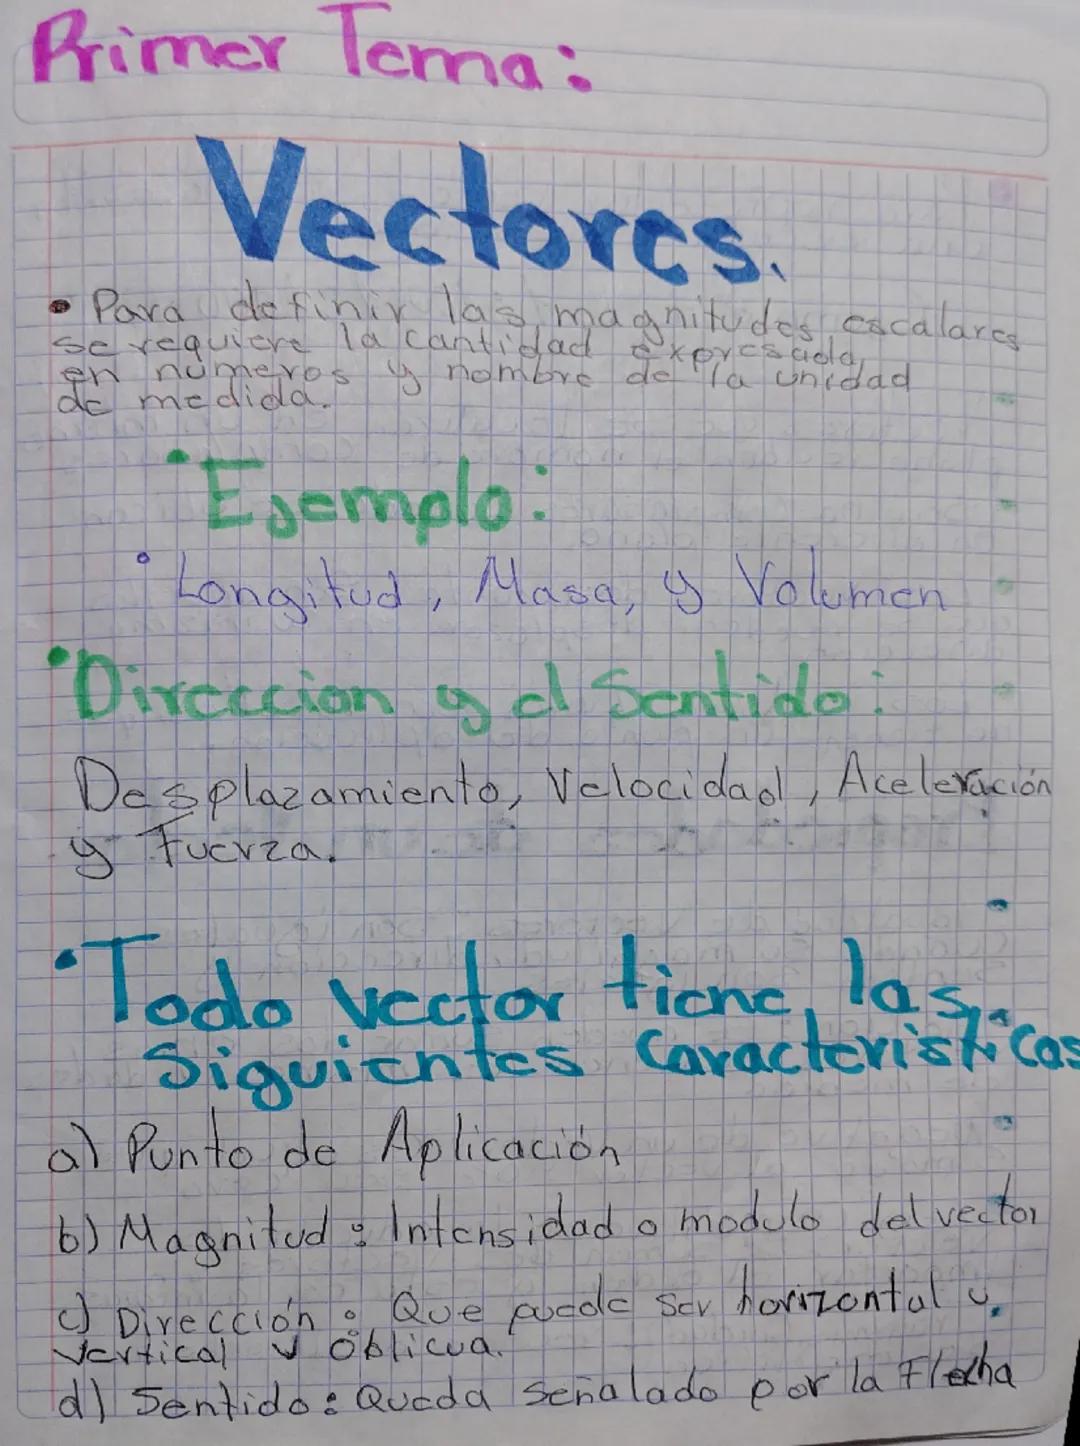 Primer Tema:
Vectores.
• Para definir las magnitudes escalares
se requiere la cantidad expresada
en números y nombre de la unidad
de medida.
• Ejemplo:
• Longitud, Masa, y Volumen
• Direccion y el Sentido:
Desplazamiento, Velocidad, Aceleración
y Fuerza.
• Todo vector tiene las
Siguientes Caracteristicas
a) Punto de Aplicación
b) Magnitud: Intensidad o modulo del vector
c) Dirección: Que puede ser horizontal u
vertical y Oblicua.
d) Sentido: Queda señalado por la Flecha